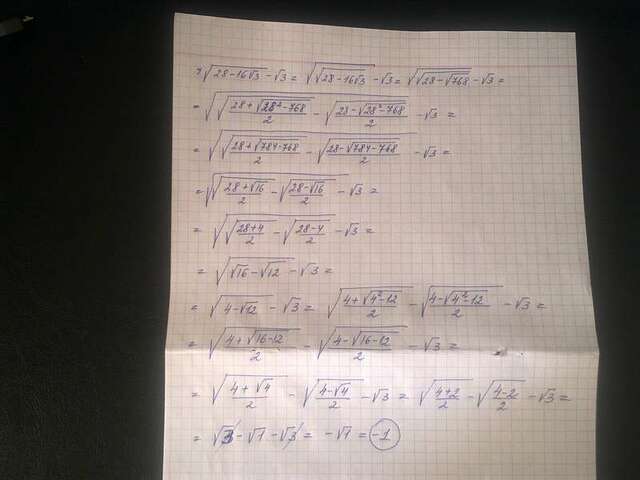 ⁴√(28-16√3) - √3 = √(√(28-16√3)) - √3 = √(√(28-√768)) - √3 =
= √(√((28+√(28²-768))/2) - √((28-√(28²-768))/2)) - √3 =
= √(√((28+√(784-768))/2) - √((28-√(784-768))/2)) - √3 =
= √(√((28+√16)/2) - √((28-√16)/2)) - √3 =
= √(√((28+4)/2) - √((28-4)/2)) - √3 =
= √(√16 - √12) - √3 =
= √(4-√12) - √3 = √((4+√(4²-12))/2) - √((4-√(4²-12))/2) - √3 =
= √((4+√(16-12))/2) - √((4-√(16-12))/2) - √3 =
= √((4+√4)/2) - √((4-√4)/2) - √3 = √((4+2)/2) - √((4-2)/2) - √3 =
= √3 - √1 - √3 = -√1 = -1